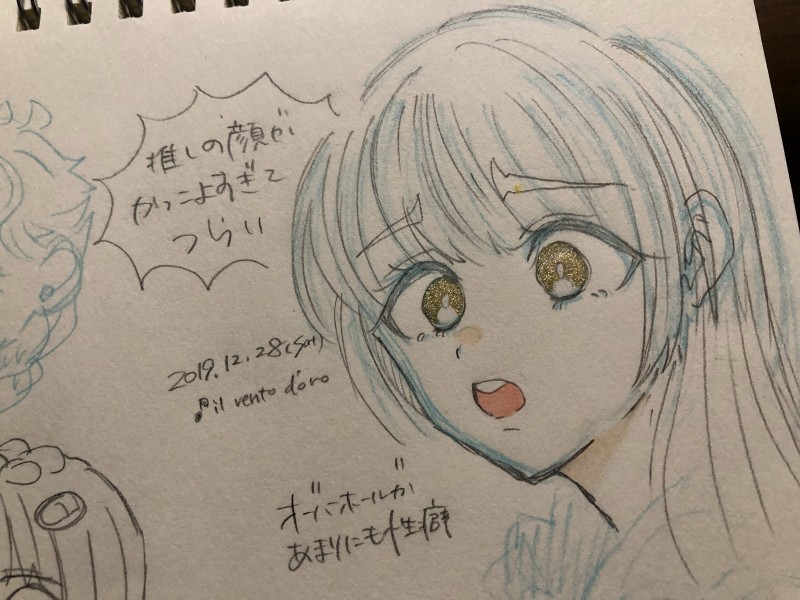 推しの顔が
かっこよすぎて
つらい
2019.12.28(Sat)
♪il vento d'oro
オーバーホールが
あまりにも性癖